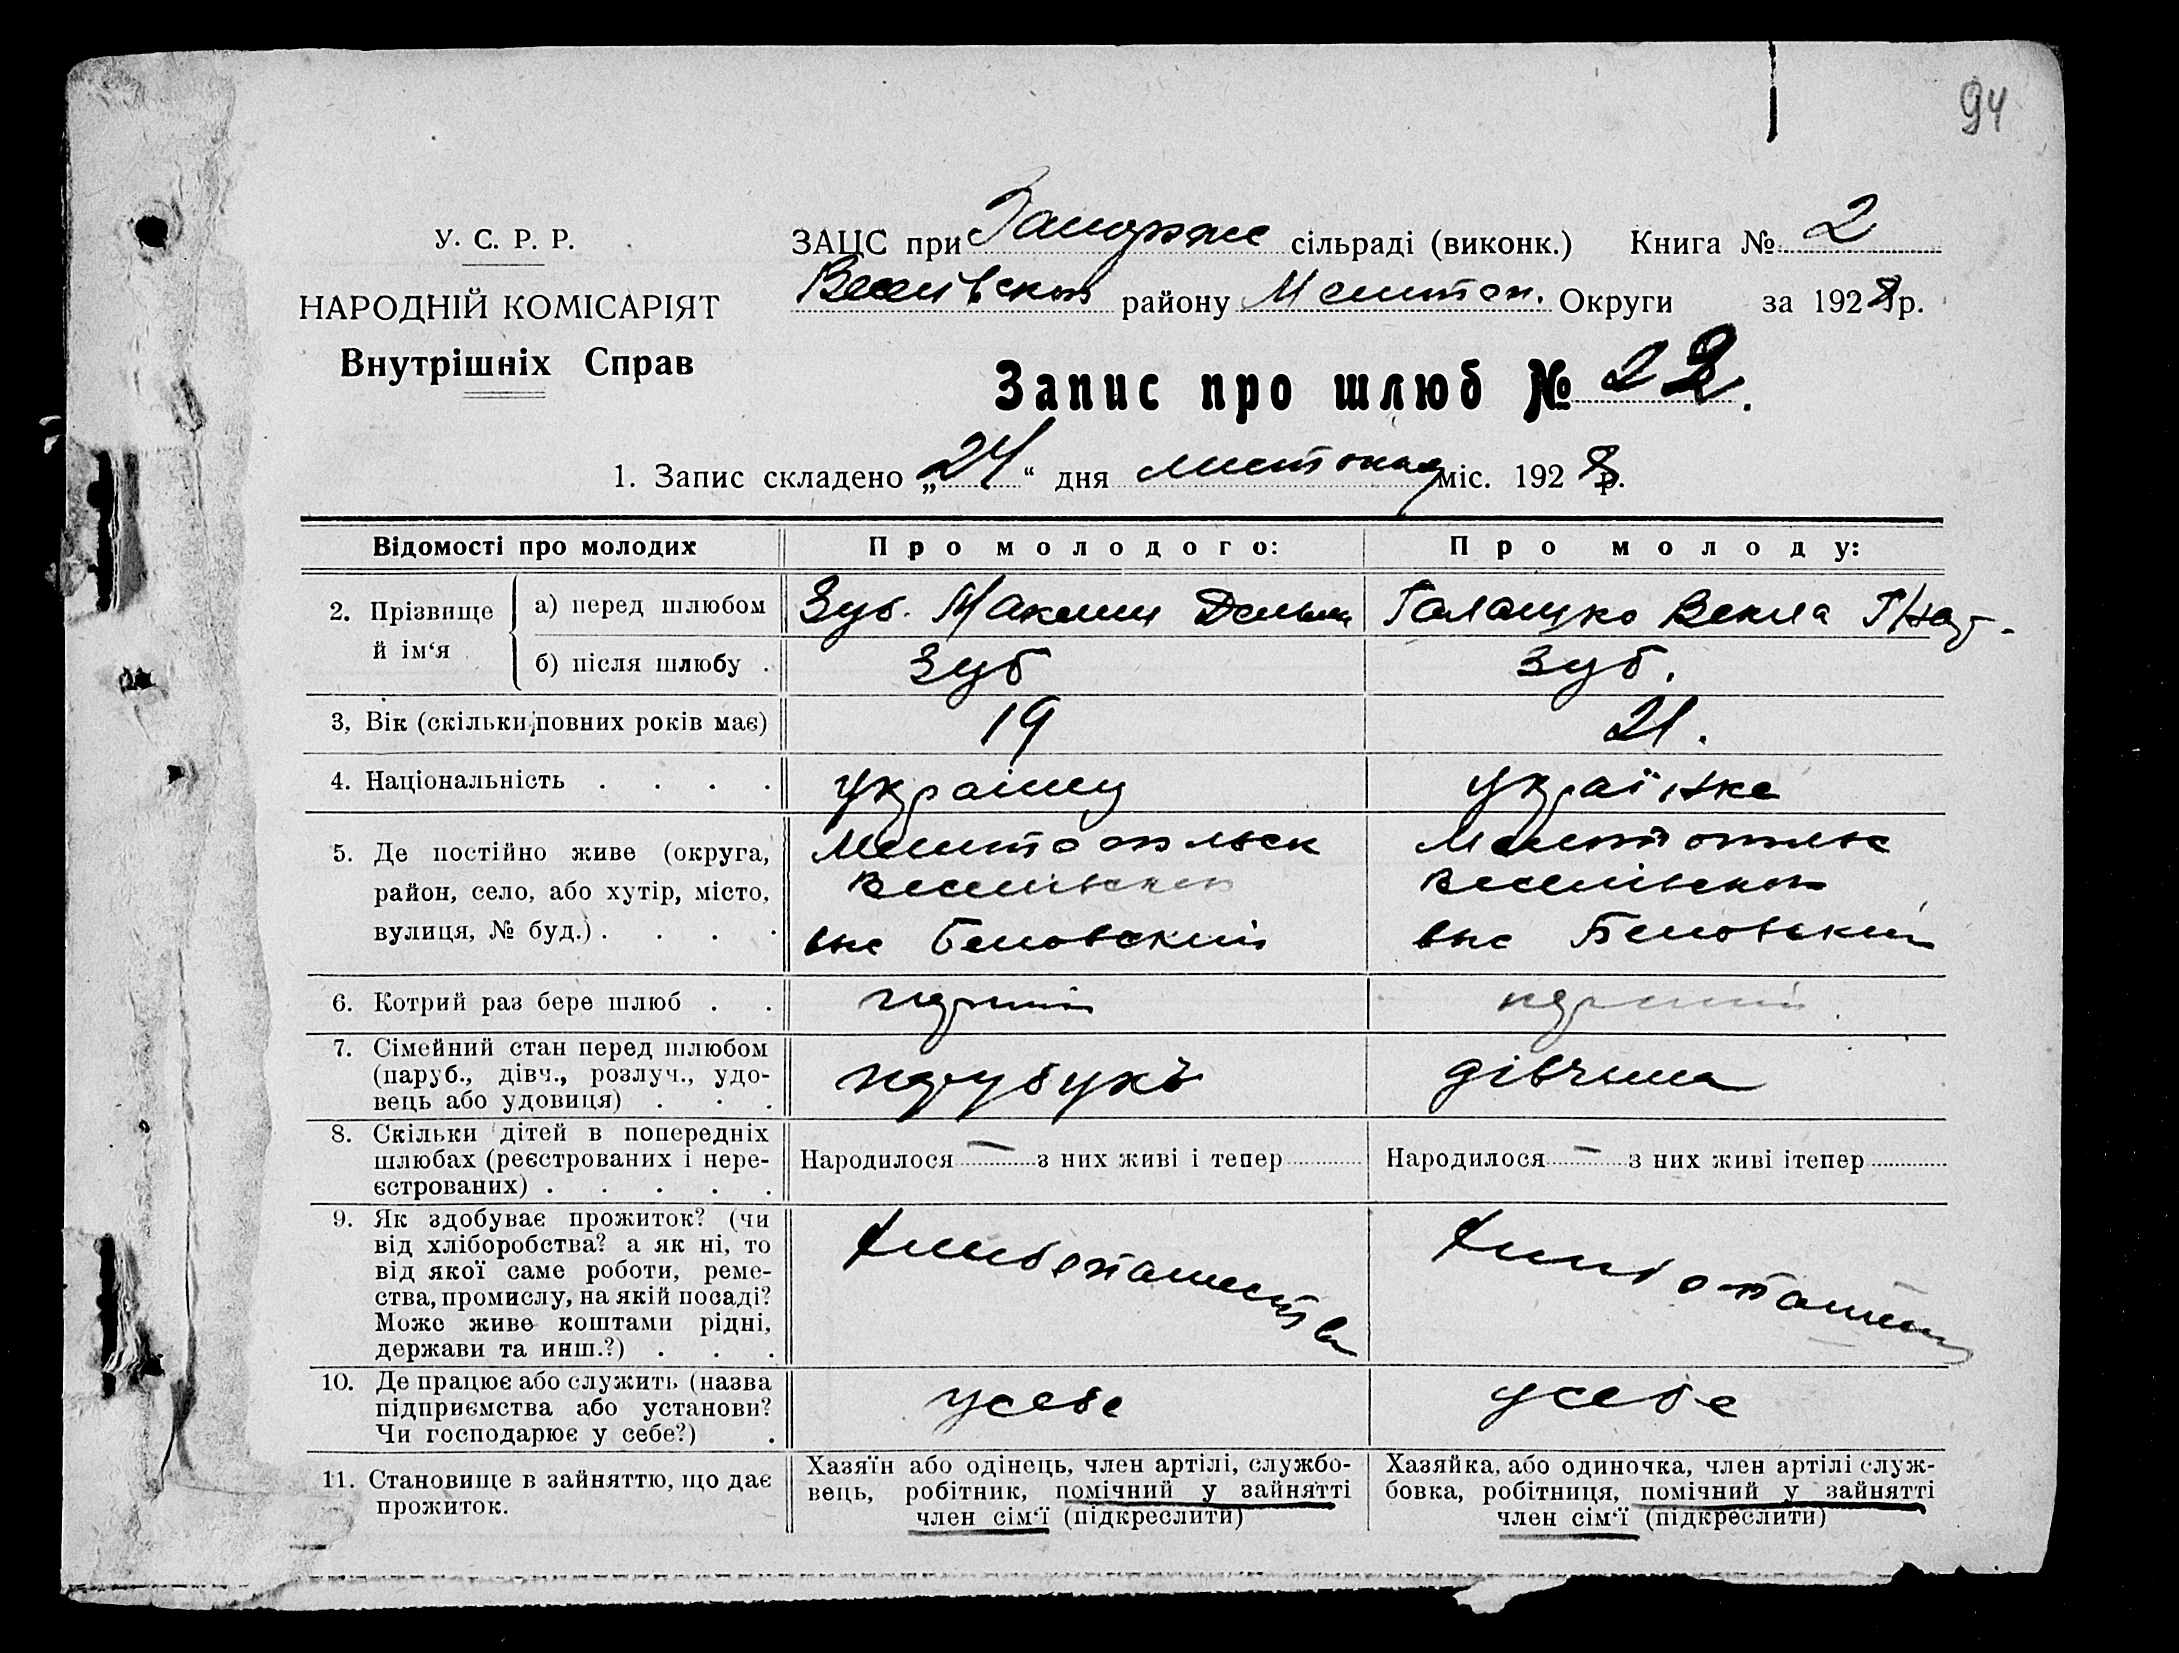 94
У. С. Р. Р.
НАРОДНІЙ КОМІСАРІЯТ
Внутрішніх Справ
ЗАЦС при Запоріж сільраді (виконк.) Книга № 2
Веселівськ району Мелітоп. Округи за 1928 р.
Запис про шлюб № 22.
1. Запис складено „24“ дня листопад міс. 1928 р.
Відомості про молодих Про молодого: Про молоду:
2. Прізвище й ім‘я
а) перед шлюбом Зуб. Максим Галацко Векла Гнат-
б) після шлюбу . Зуб Зуб.
3, Вік (скільки повних років має) 19 21.
4. Національність . . . . українц українка
5. Де постійно живе (округа, Мелитопольск Мелитопольс
район, село, або хутір, місто, Веселівськ Веселівськ
вулиця, № буд.) . . . . вис Беловский вис Беловський
6. Котрий раз бере шлюб . . перший перший
7. Сімейний стан перед шлюбом
(паруб., дівч., розлуч., удо-
вець або удовиця) . . . парубукъ дівчина
8. Скільки дітей в попередніх
шлюбах (реєстрованих і нере-
єстрованих) . . . . .
Народилося — з них живі і тепер Народилося — з них живі ітепер
9. Як здобуває прожиток? (чи
від хліборобства? а як ні, то
від якої саме роботи, реме-
ства, промислу, на якій посаді?
Може живе коштами рідні,
держави та инш.?) . . .
хлибопашества хлибопашес
10. Де працює або служить (назва
підприємства або установи?
Чи господарює у себе?) .
усебе усебе
11. Становище в зайняттю, що дає
прожиток.
Хазяїн або одінець, член артілі, службо-
вець, робітник, помічний у зайнятті
член сім‘ї (підкреслити)
Хазяйка, або одиночка, член артілі служ-
бовка, робітниця, помічний у зайнятті
член сім‘ї (підкреслити)